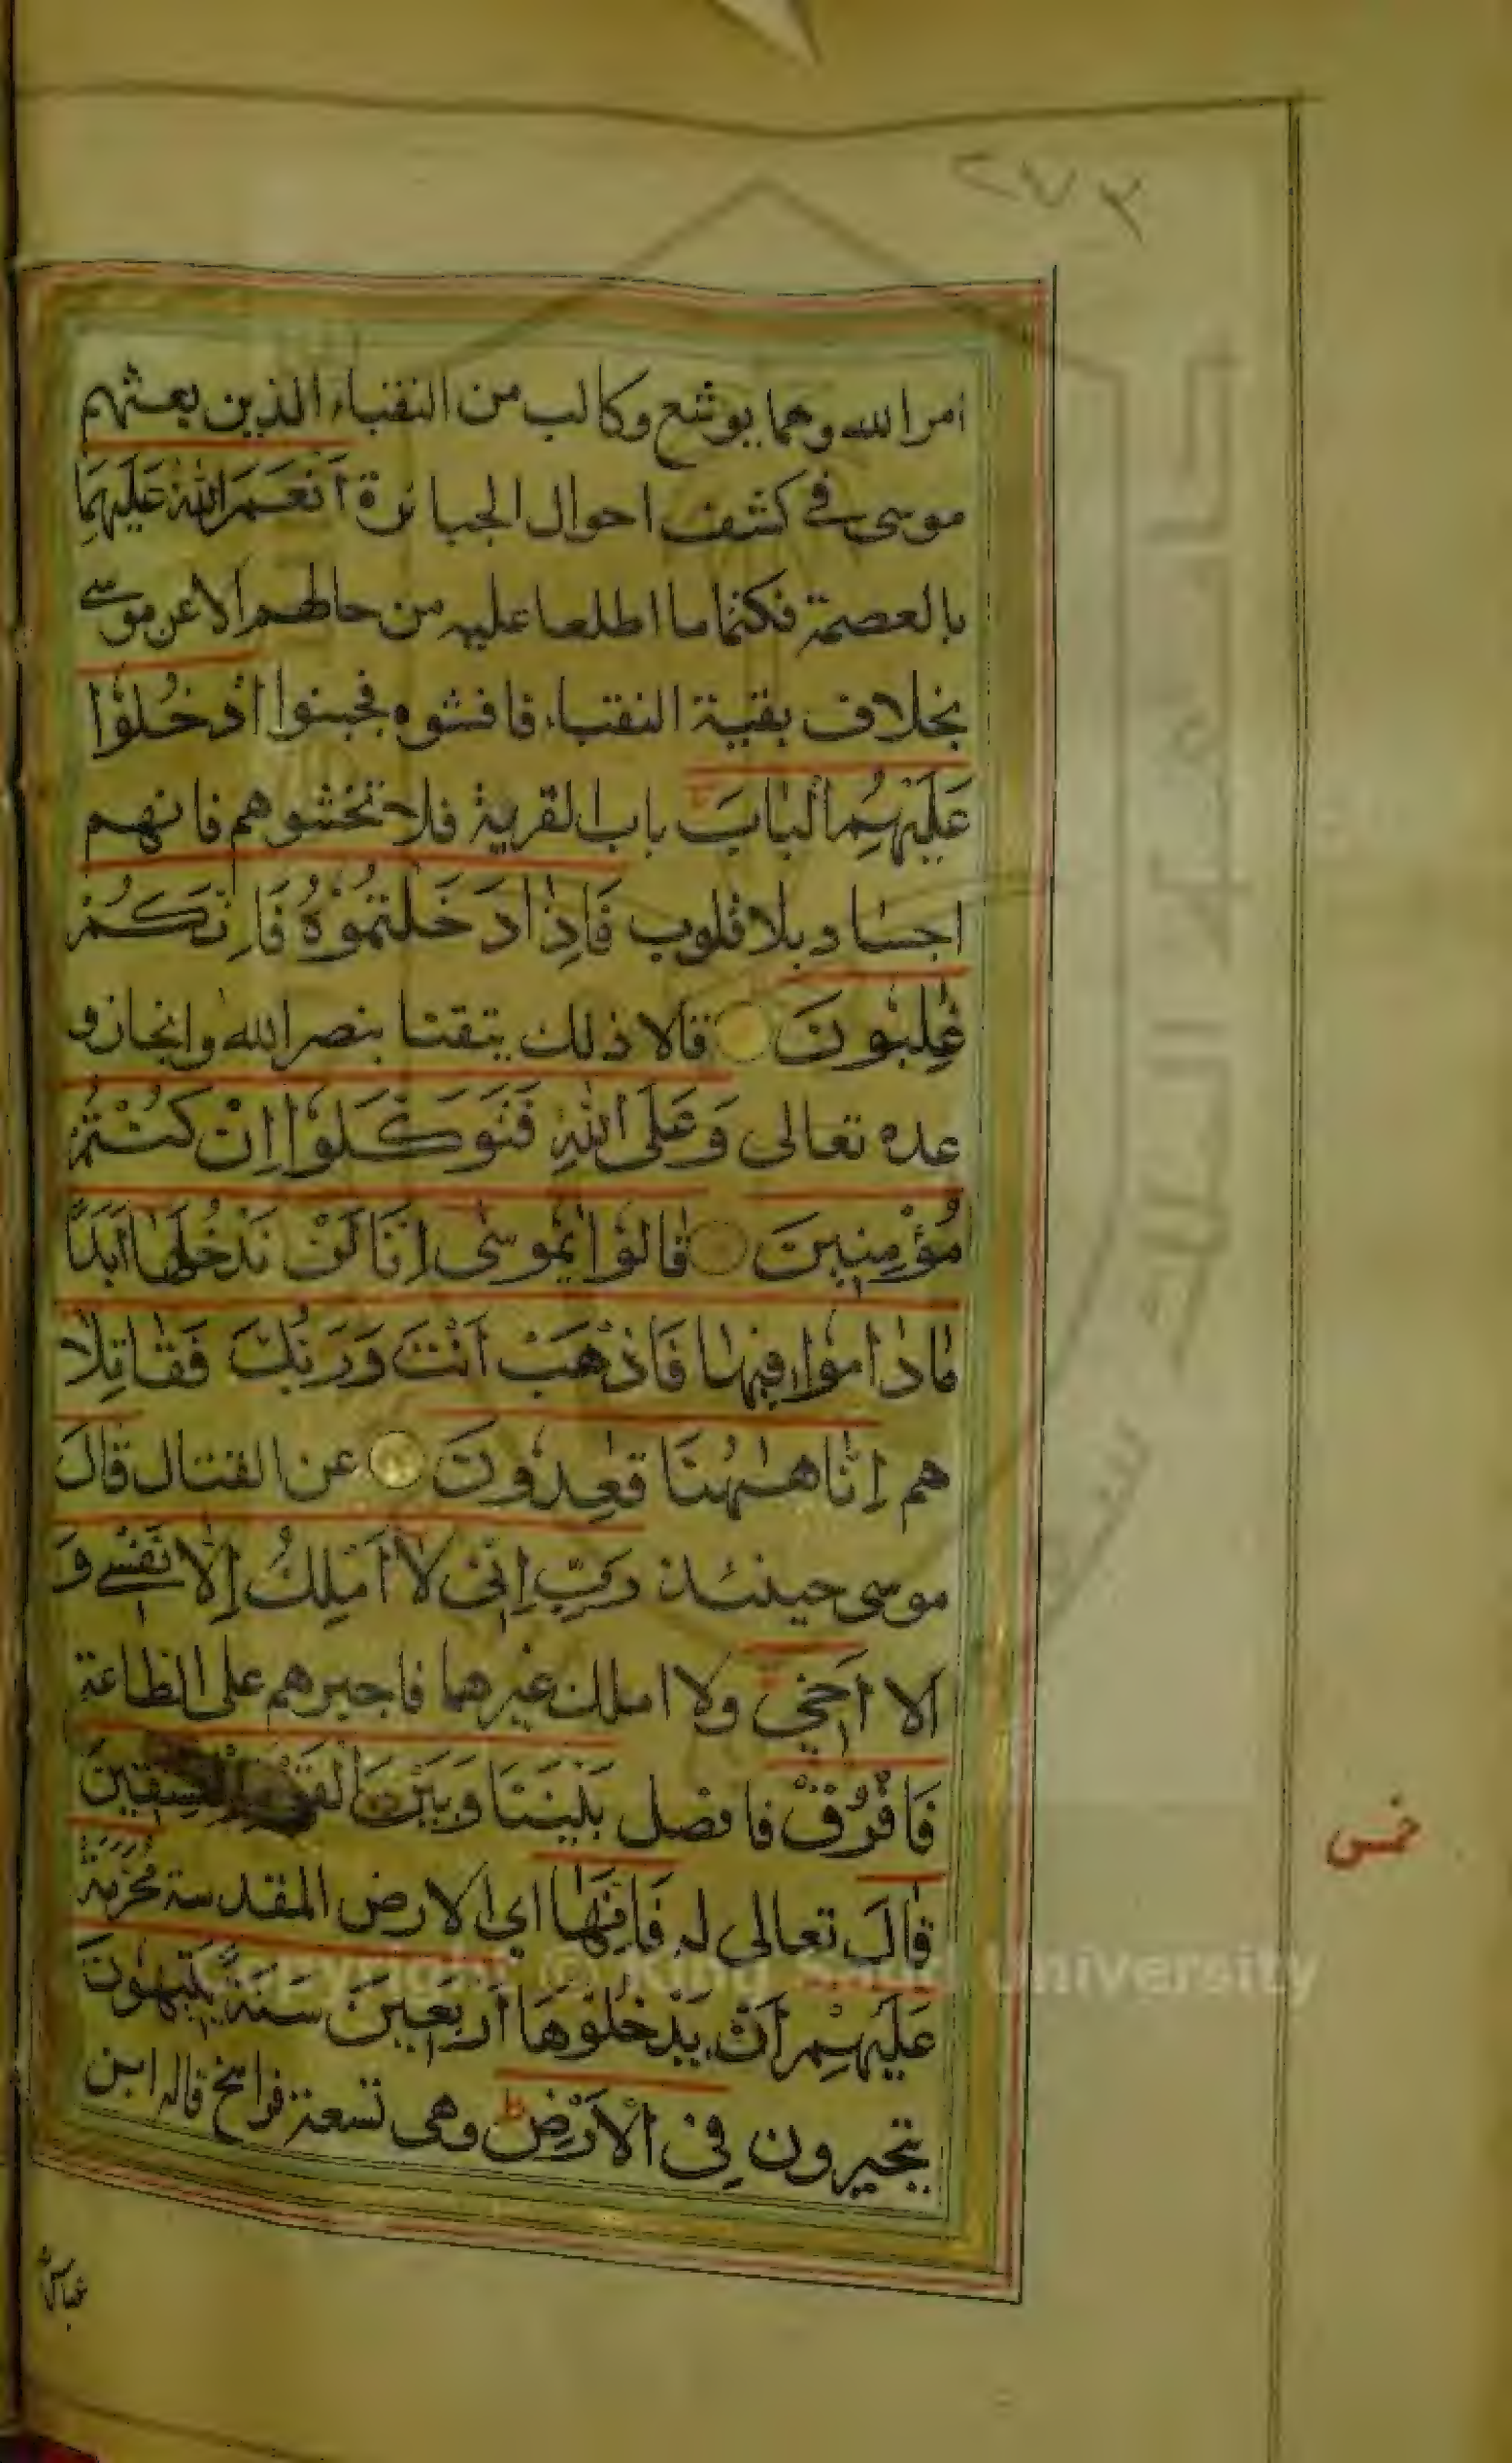 ٢٧٣
امر الله وهما يوشع وكالب من النقباء الذين بعثهم
موسى في كشف احوال الجبابرة أَنْعَمَ اللّٰهُ عَلَيْهِمَا
بالعصمة فكتما ما اطلعا عليه من حالهم الا عن موسى
بخلاف بقية النقباء فافشوه فجبنوا ادْخُلُوْا
عَلَيْهِمُ الْبَابَ ج باب القرية فلا تخشوهم فانهم
اجساد بلا قلوب فَاِذَا دَخَلْتُمُوْهُ فَاِنَّكُمْ
غٰلِبُوْنَ قالا ذلك تيقنا بنصر الله وانجاز و
عده تعالى وَعَلَى اللّٰهِ فَتَوَكَّلُوْا اِنْ كُنْتُمْ
مُؤْمِنِيْنَ قَالُوْا يٰمُوسٰى اِنَّا لَنْ نَدْخُلَهَا اَبَدًا
مَادَامُوْا فِيْهَا فَاذْهَبْ اَنْتَ وَرَبُّكَ فَقَاتِلَا
هم اِنَّا هٰهُنَا قٰعِدُوْنَ عن القتال قَالَ
موسى حينئذ رَبِّ اِنِّىْ لَا اَمْلِكُ اِلَّا نَفْسِىْ وَ
الا اَخِيْ ولا املك غيرهما فاجبرهم على الطاعة
فَافْرُقْ فافصل بَيْنَنَا وَبَيْنَ الْقَوْمِ الْفٰسِقِيْنَ
قَالَ تعالى له فَاِنَّهَا اي الارض المقدسة مُحَرَّمَةٌ
عَلَيْهِمْ اَنْ يَدْخُلُوْهَا اَرْبَعِيْنَ سَنَةً يَتِيْهُوْنَ
يتحيرون فِى الْاَرْضِ ط وهى تسعة فراسخ قاله ابن
عباس
خمس
Copyright © King Saud University